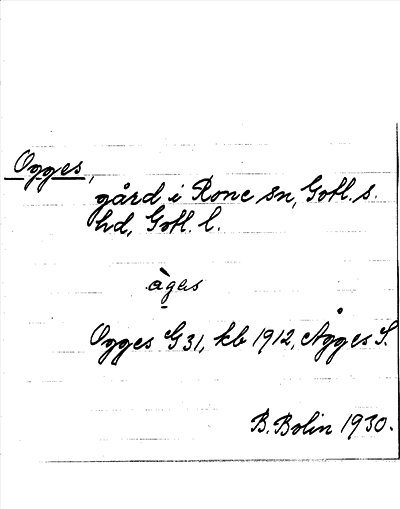 Ogges,
gård i Rone sn, Gotl. s.
hd, Gotl. l.
Ogges G 31, kb 1912, Ågges S.
B. Bolin 1930.